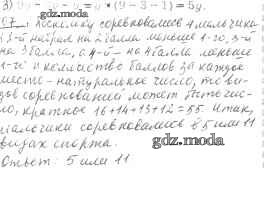 3) 9y - y - 3y = y • (9-3-1) = 5y.
Поскольку соревновались 4 мальчика
и 2-й набрал на 2 балла меньше 1-го, 3-й
на 3 балла, а 4-й - на 4 балла меньше
1-го и количество баллов за каждое
место - натуральное число, то ви-
дов соревнований может быть чис-
ло, кратное 16+14+13+12=55. Итак,
мальчики соревновались в 5 или 11
видах спорта.
gdz.moda
Ответ: 5 или 11
gdz.moda